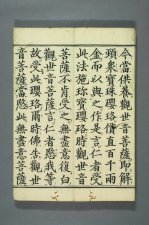 今當供養觀世音菩薩即解
頸衆寶珠瓔珞價直百千兩
金而以與之作是言仁者受
此法施珍寶瓔珞時觀世音
菩薩不肯受之無盡意復白
觀世音菩薩言仁者愍我等
故受此瓔珞爾時佛告觀世
音菩薩當愍此無盡意菩薩